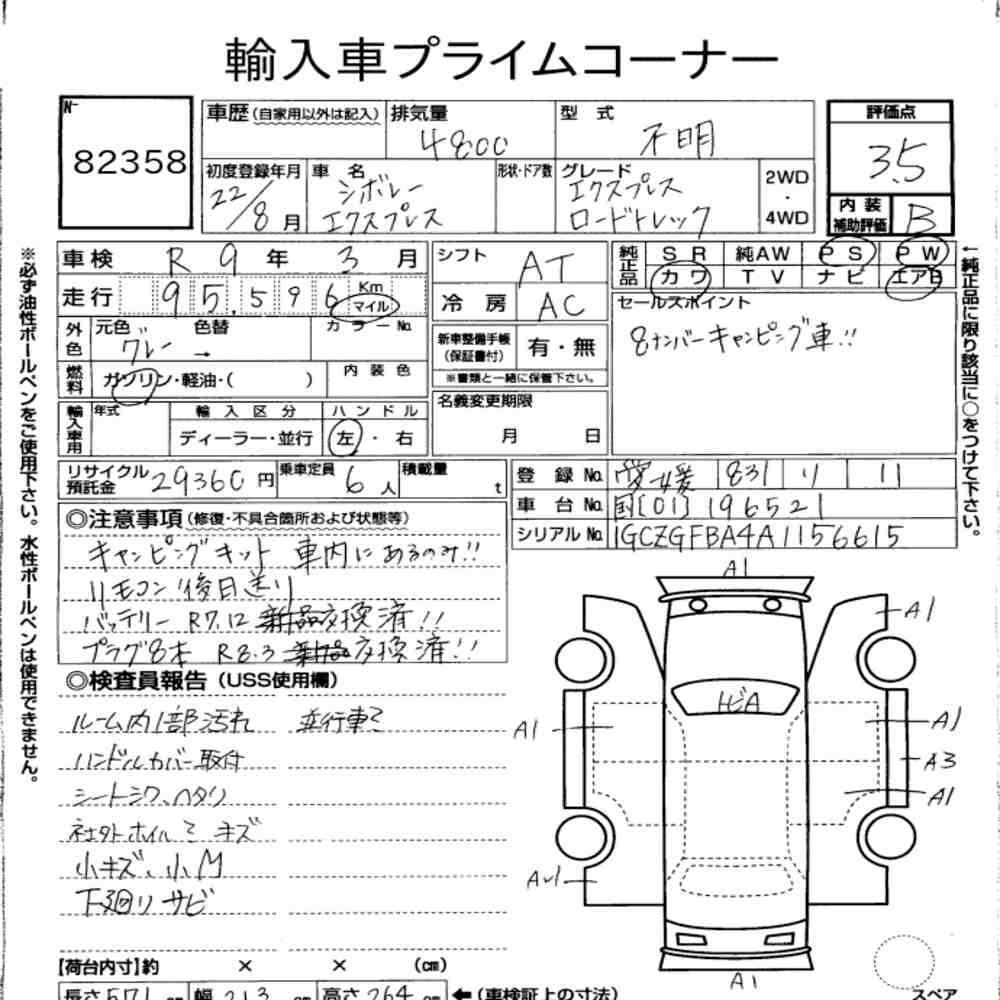 輸入車プライムコーナー
N-
82358
車歴 (自家用以外は記入)
排気量
4800
型 式
不明
評価点
3.5
初度登録年月
22/8月
車 名
シボレー
エクスプレス
形状・ドア数
グレード
エクスプレス
ロードトレック
2WD
・
4WD
内 装
補助評価
B
車検 R 9 年 3 月
シフト AT
純正品
SR 純AW PS PW
カワ TV ナビ エアB
走行 95,596 Km マイル
冷 房 AC
セールスポイント
8ナンバーキャンピング車!!
外色
元色 色替
グレー →
カラーNo.
新車整備手帳
(保証書付)
有・無
※書類と一緒に保管下さい。
燃料
ガソリン・軽油・( )
内 装 色
名義変更期限
月 日
輸入車用
年式
輸 入 区 分
ディーラー・並行
ハ ン ド ル
左 ・ 右
リサイクル
預託金
29360 円
乗車定員
6 人
積載量
t
登 録 No. 愛媛 831 リ 11
車 台 No. 国[01]196521
シリアル No. 1GCZGFBA4A1156615
◎注意事項 (修復・不具合箇所および状態等)
キャンピングキット 車内にあるのみ!!
リモコン後日送り
バッテリー R7.12 新品交換済!!
プラグ8本 R8.3 新品交換済!!
◎検査員報告 (USS使用欄)
ルーム内1部汚れ 並行車ミ
ハンドルカバー取付
シートシワ、ヘタリ
社外ホイルミ キズ
小キズ、小M
下廻りサビ
A1
A1
トビA
A1
A1
A3
A1
A1
【荷台内寸】約 × × (cm)
長さ 571 cm 幅 213 cm 高さ 264 cm ←(車検証上の寸法)
スペア
※必ず油性ボールペンをご使用下さい。水性ボールペンは使用できません。
←純正品に限り該当に○をつけて下さい。